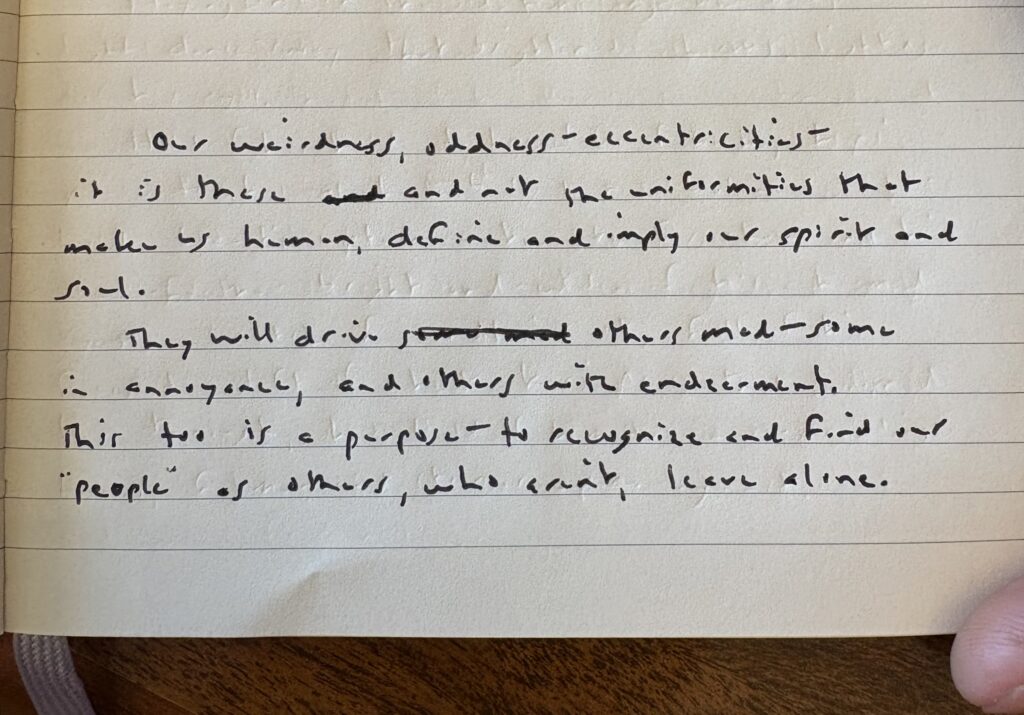 Our weirdness, oddness-eccentricities-
it is these and and not the uniformities that
make us human, define and imply our spirit and
soul.
They will drive some mad others mad-some
in annoyance, and others with endearment.
This too is a purpose-to recognize and find our
"people" as others, who aren't, leave alone.